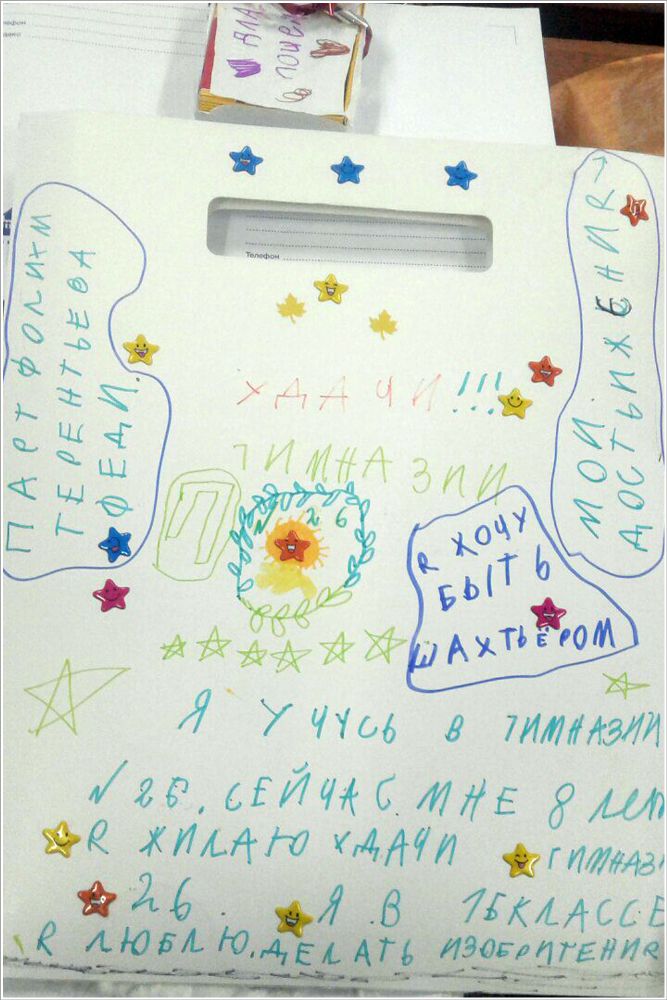 Телефон
ПАРТФОЛИХМ
ТЕРЕНТЬЕВА
ФЕДИ.
МОИ.
ДОСТЬИЖЕНИR
ХДАЧИ!!!
ГИМНАЗИИ
N 26
Л
R ХОЧУ
БЫТЬ
ШАХТЬЁРОМ
Я УЧУСЬ В ГИМНАЗИИ
N 26. СЕЙЧАС. МНЕ 8 ЛЕТ
R ЖИЛАЮ ХДАЧИ ГИМНАЗИ
26. Я.В 1БКЛАССЕ
R ЛЮБЛЮ.ДЕЛАТЬ ИЗОБРИТЕНИR